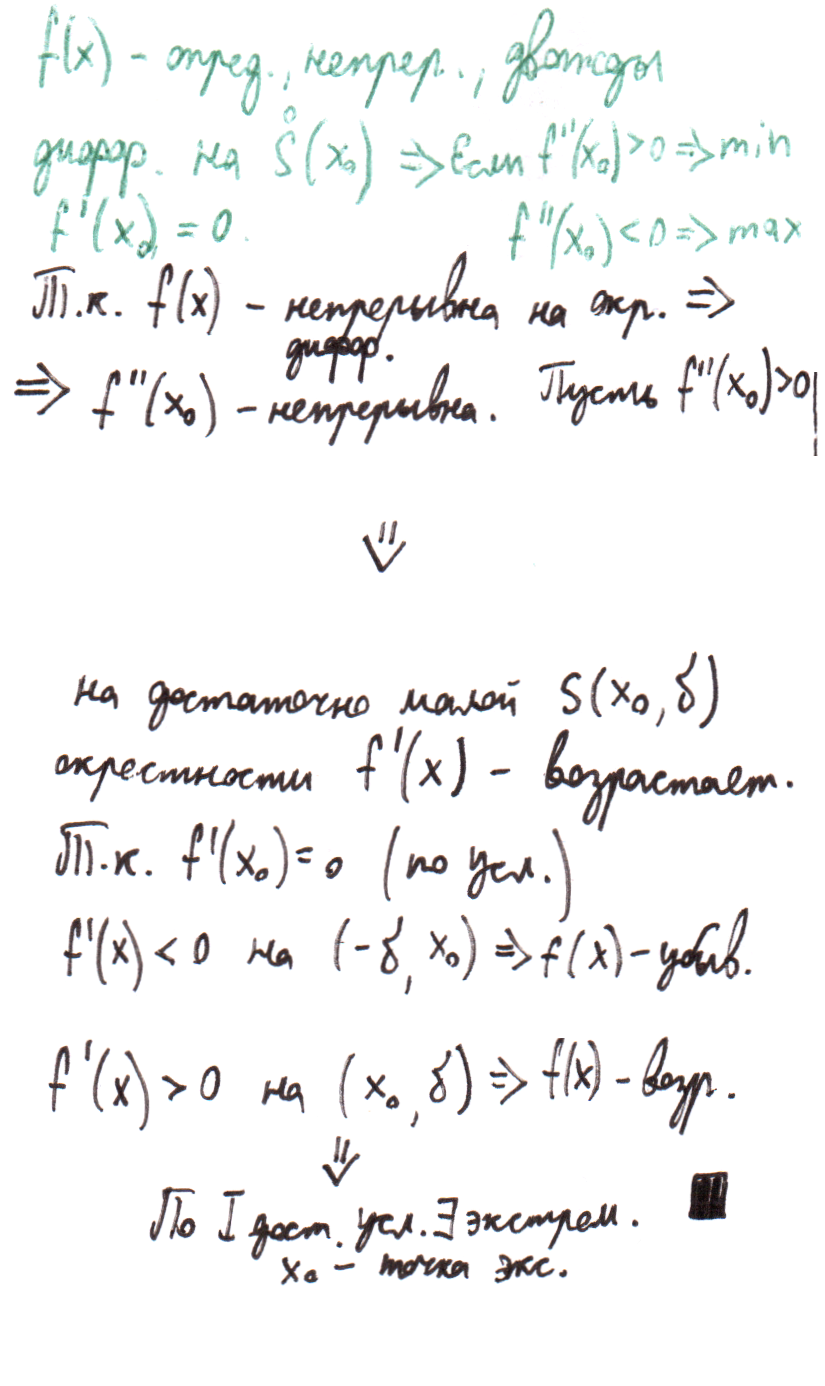 f(x) - опред., непрер., дважды
дифф. на S̊(x₀) ⇒ Если f''(x₀)>0 ⇒ min
f'(x₀) = 0. f''(x₀)<0 ⇒ max
Т.к. f(x) - непрерывна на окр. ⇒
дифф.
⇒ f''(x₀) - непрерывна. Пусть f''(x₀)>0
⇓
на достаточно малой S(x₀, δ)
окрестности f'(x) - возрастает.
Т.к. f'(x₀)=0 (по усл.)
f'(x) < 0 на (-δ, x₀) ⇒ f(x) - убыв.
f'(x) > 0 на (x₀, δ) ⇒ f(x) - возр.
⇓
По I дост. усл. ∃ экстрем. ■
x₀ - точка экс.